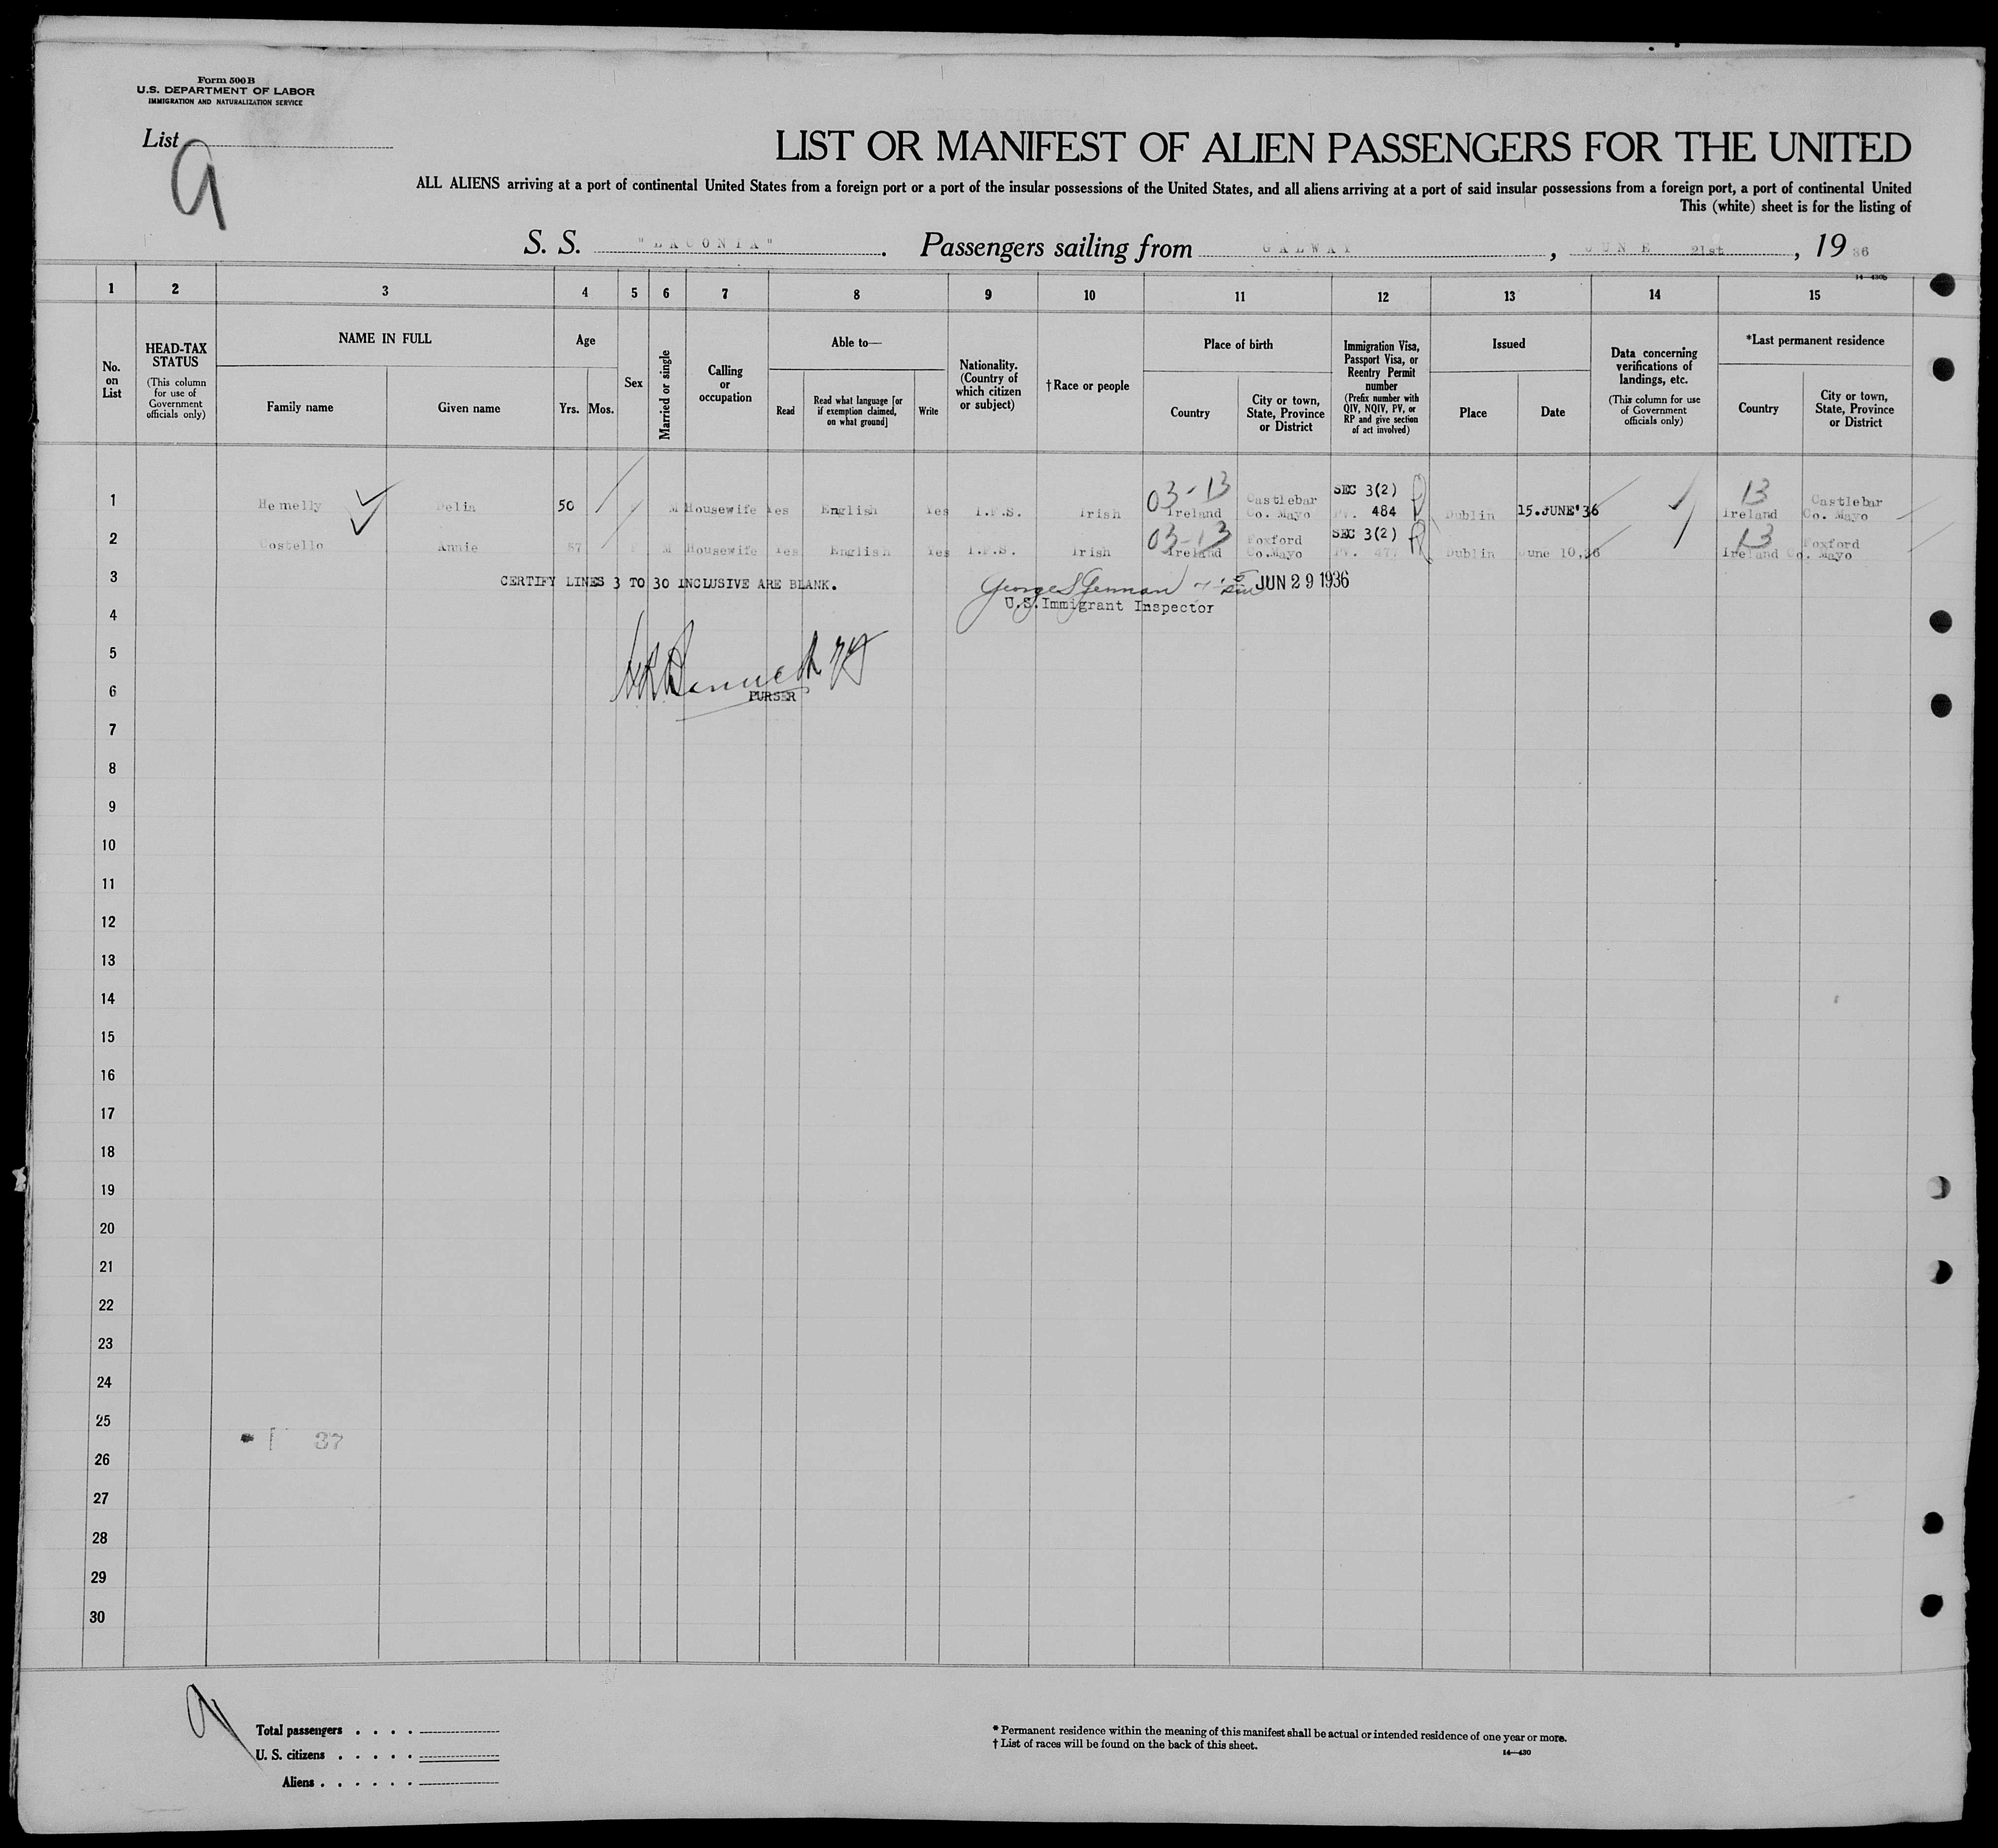 Form 500 B
U.S. DEPARTMENT OF LABOR
IMMIGRATION AND NATURALIZATION SERVICE
List 9
LIST OR MANIFEST OF ALIEN PASSENGERS FOR THE UNITED
ALL ALIENS arriving at a port of continental United States from a foreign port or a port of the insular possessions of the United States, and all aliens arriving at a port of said insular possessions from a foreign port, a port of continental United
This (white) sheet is for the listing of
S. S. "LACONIA". Passengers sailing from GALWAY, JUNE 21st, 1936
14—430b
1 2 3 4 5 6 7 8 9 10 11 12 13 14 15
No. on List
HEAD-TAX STATUS (This column for use of Government officials only)
NAME IN FULL
Family name Given name
Age
Yrs. Mos.
Sex
Married or single
Calling or occupation
Able to—
Read Read what language [or if exemption claimed, on what ground] Write
Nationality. (Country of which citizen or subject)
† Race or people
Place of birth
Country City or town, State, Province or District
Immigration Visa, Passport Visa, or Reentry Permit number (Prefix number with QIV, NQIV, PV, or RP and give section of act involved)
Issued
Place Date
Data concerning verifications of landings, etc. (This column for use of Government officials only)
*Last permanent residence
Country City or town, State, Province or District
03-13 Castlebar SEC 3(2) 13 Castlebar
1 Delia 50 M Housewife Yes English Yes I.F.S. Irish Ireland Co. Mayo PV. 484 Dublin 15.JUNE'36 Ireland Co. Mayo
03-13 Foxford SEC 3(2) 13 Foxford
2 Costello Annie 57 F M Housewife Yes English Yes I.F.S. Irish Ireland Co.Mayo PV. 477 Dublin June 10,36 Ireland Co. Mayo
3 CERTIFY LINES 3 TO 30 INCLUSIVE ARE BLANK. JUN 29 1936
U.S.Immigrant Inspector
4
5
6 PURSER
7
8
9
10
11
12
13
14
15
16
17
18
19
20
21
22
23
24
25
37
26
27
28
29
30
9
Total passengers . . . .
U. S. citizens . . . . .
Aliens . . . . . .
* Permanent residence within the meaning of this manifest shall be actual or intended residence of one year or more.
† List of races will be found on the back of this sheet.
14—430